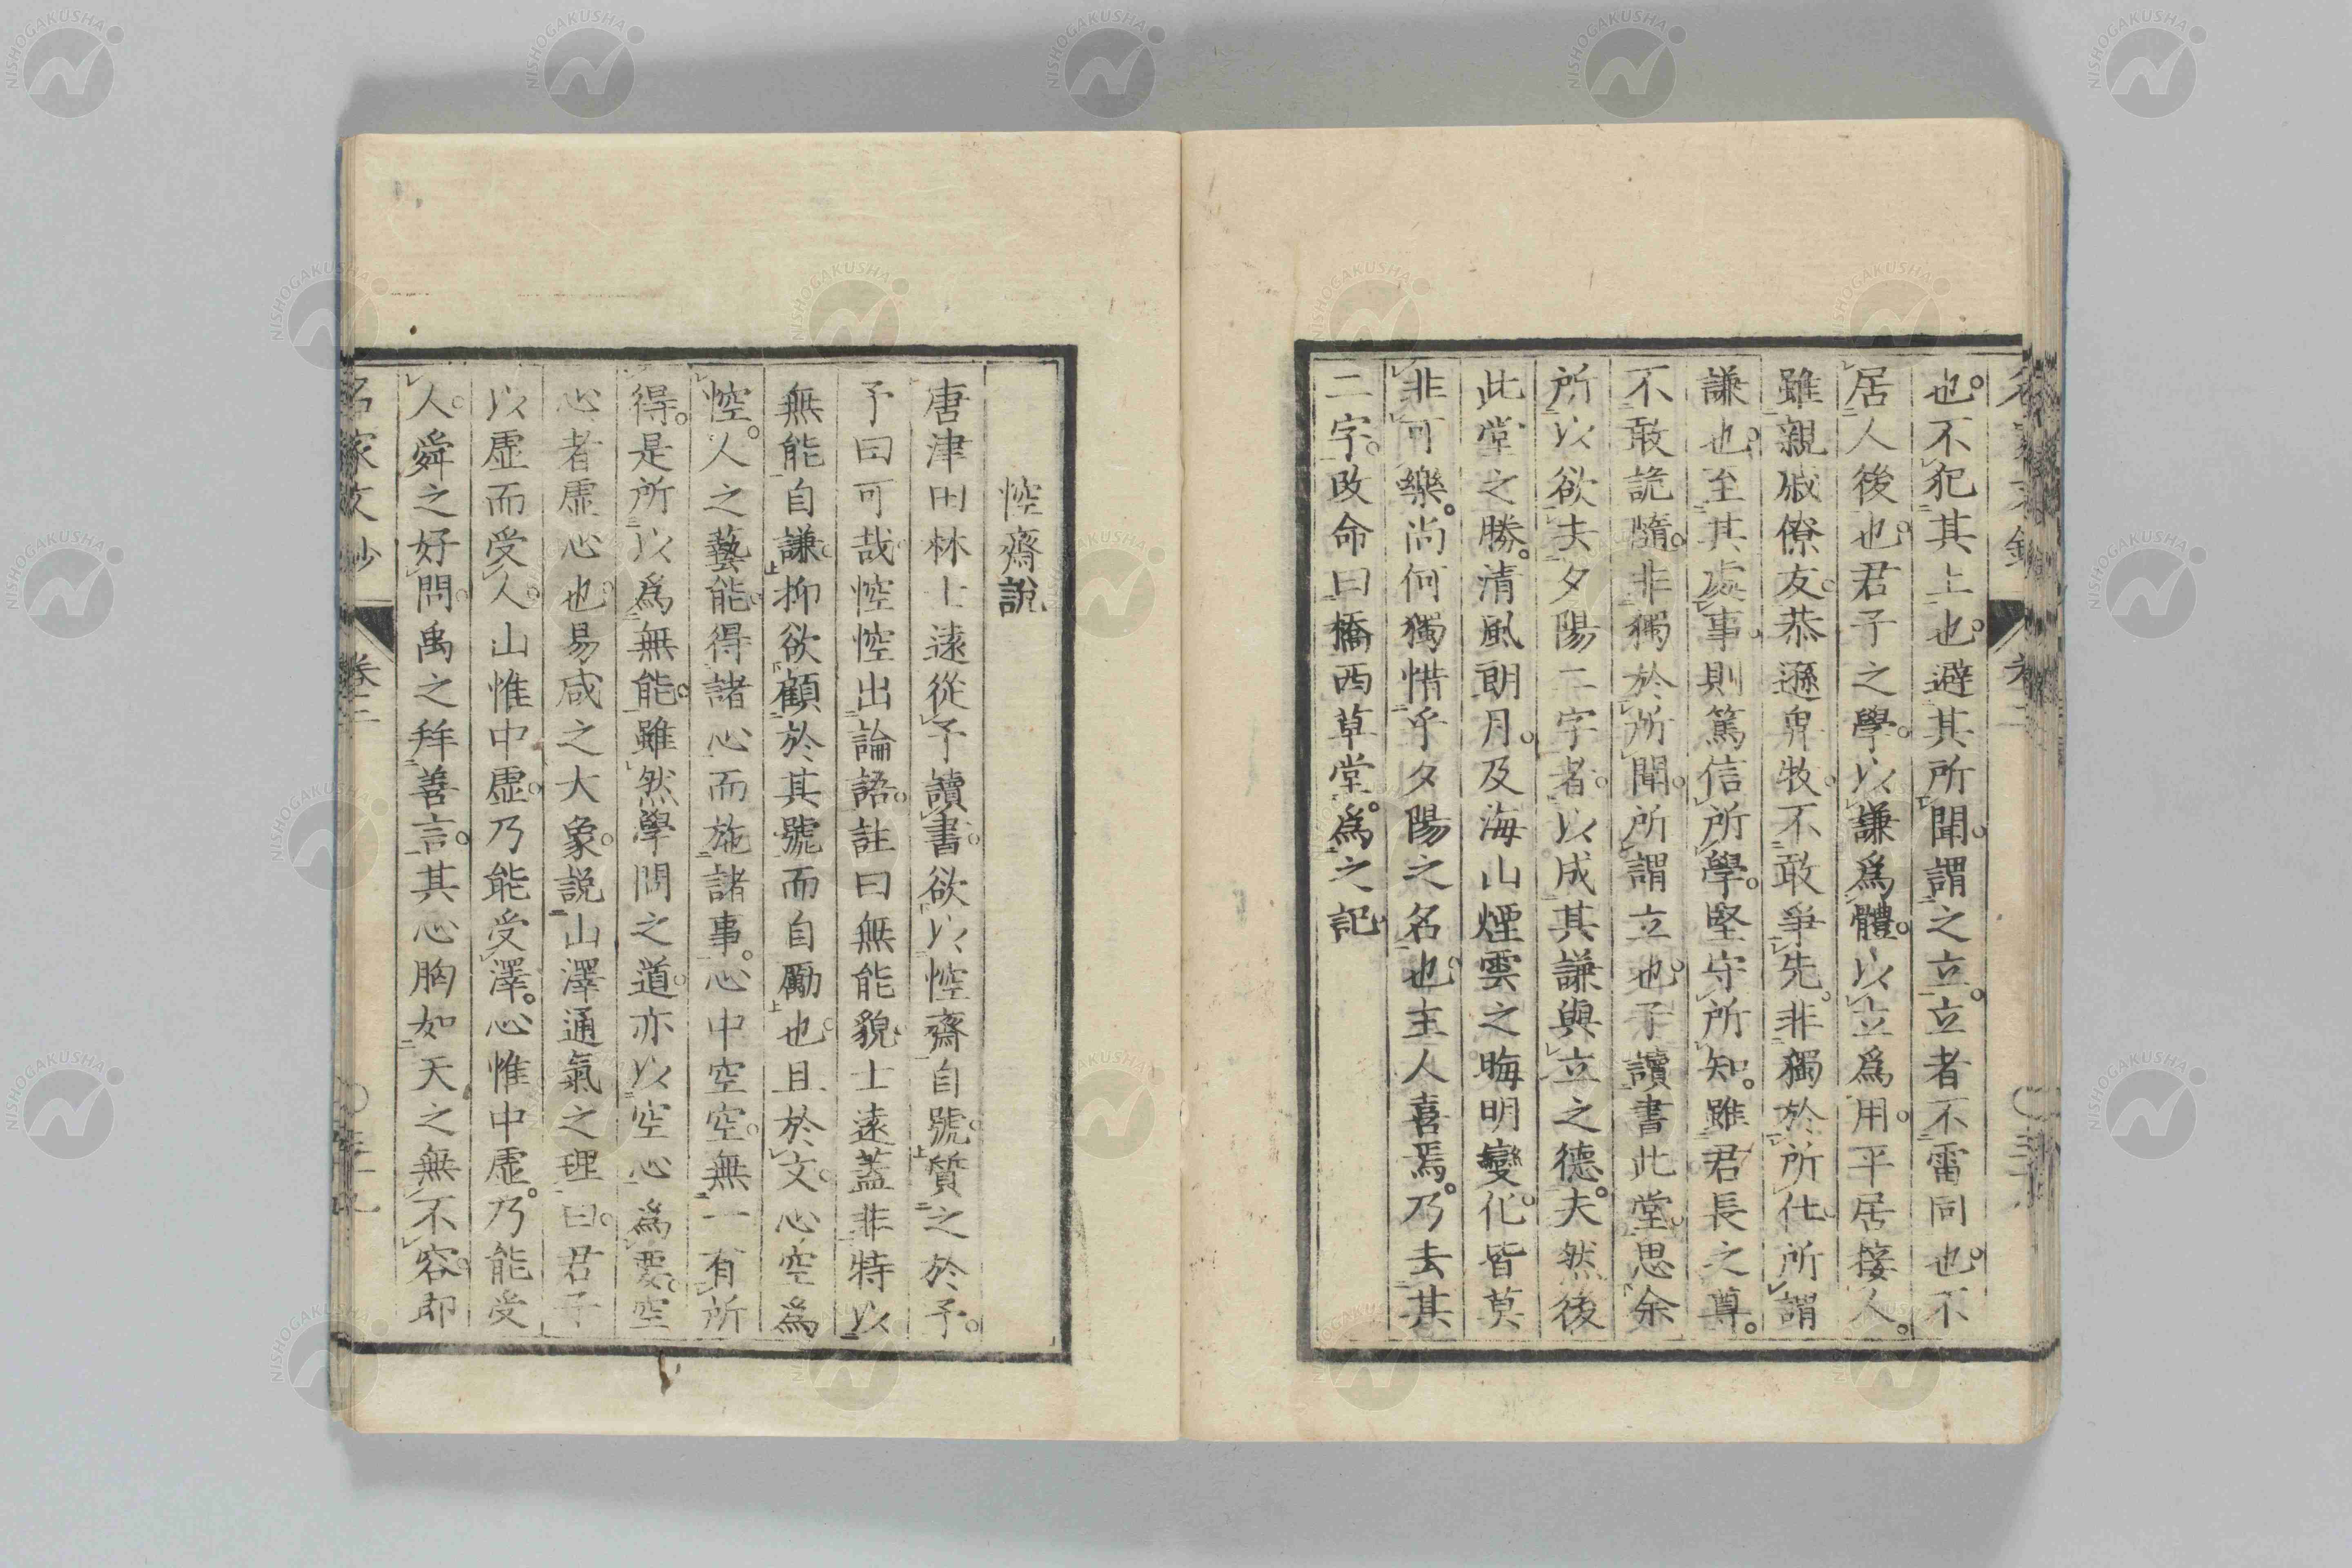 也。不犯其上也。避其所聞。謂之立。立者不雷同也。不
居人後也。君子之學。以謙爲體。以立爲用。平居接人。
雖親戚僚友。恭遜卑牧。不敢爭先。非獨於所仕。所謂
謙也。至其處事。則篤信所學。堅守所知。雖君長之尊。
不敢詭隨。非獨於所聞。所謂立也。予讀書此堂。思余
所以欲夫夕陽二字者。以成其謙與立之德。夫然後
此堂之勝。清風朗月。及海山煙雲之晦明變化。皆莫
非可樂。尚何獨惜乎夕陽之名也。主人喜焉。乃去其
二字。改命曰橋西草堂。爲之記
悾齋說
唐津田林士遠從予讀書。欲以悾齋自號。質之於予。
予曰可哉。悾悾出論語。註曰無能貌。士遠蓋非特以
無能自謙。抑欲顧於其號而自勵也。且於文。心空爲
悾。人之藝能。得諸心而施諸事。心中空空。無一有所
得。是所以爲無能。雖然學問之道。亦以空心爲要。空
心者虛心也。易咸之大象。説山澤通氣之理。曰。君子
以虛而受人。山惟中虛。乃能受澤。心惟中虛。乃能受
人。舜之好問。禹之拜善言。其心胸如天之無不容。却
名家文抄 卷二
NISHOGAKUSHA